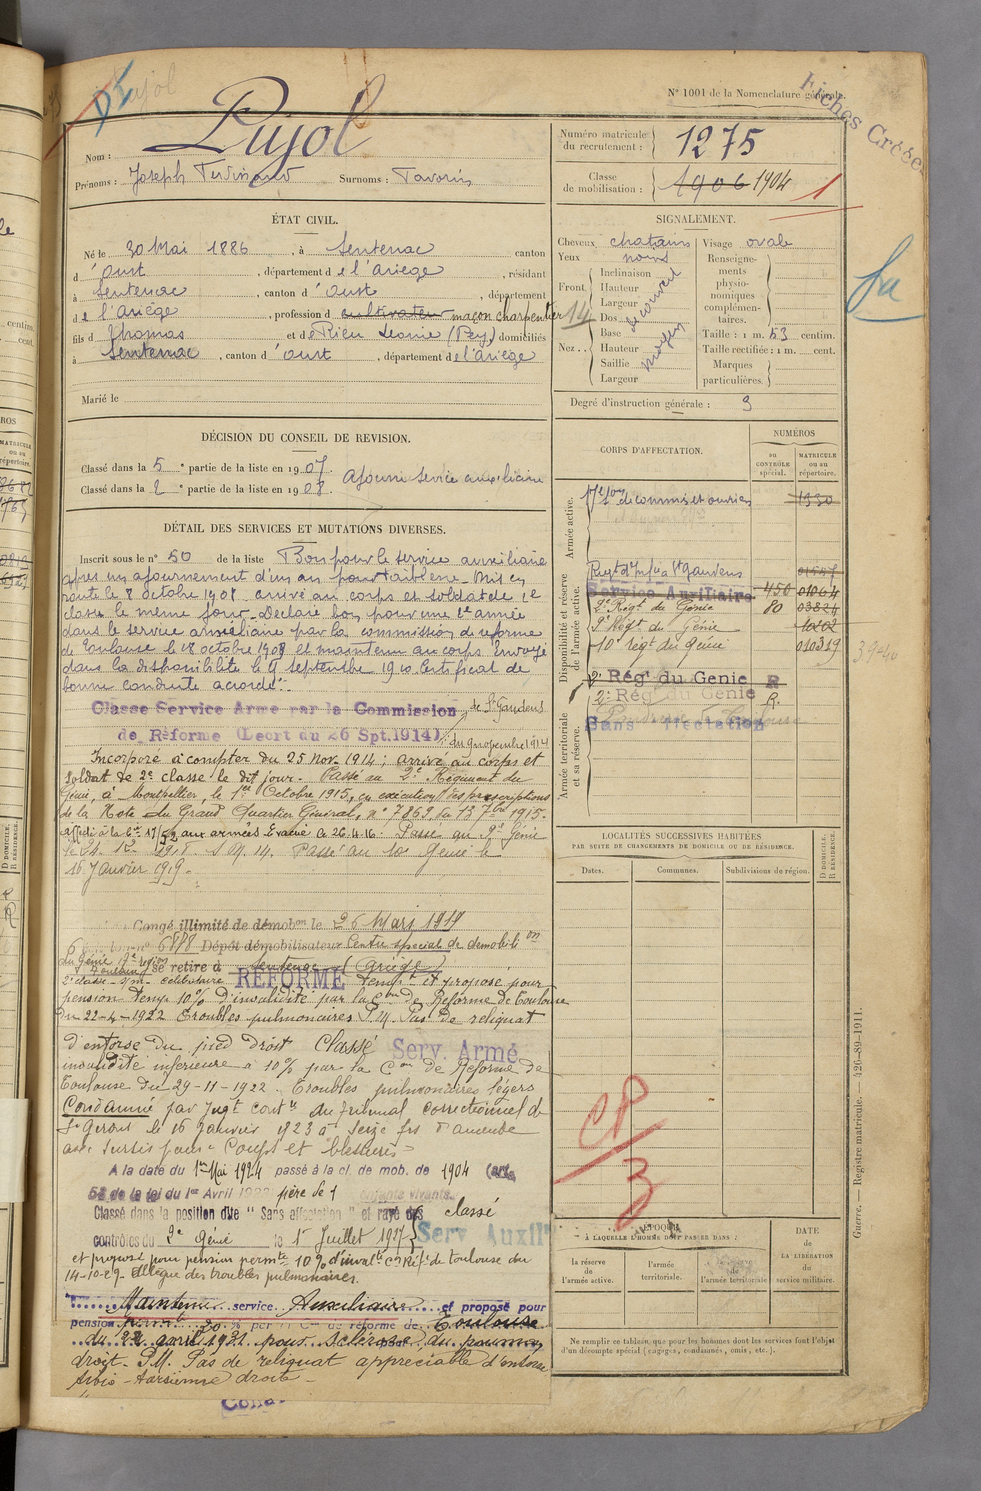 Pujol
N° 1001 de la Nomenclature générale.
Fiches Créées
Nom : Pujol
Prénoms : Joseph Ferdinand Surnoms : Tavorin
Numéro matricule du recrutement : 1275
Classe de mobilisation : 1906 1904
1
ÉTAT CIVIL.
Né le 30 Mai 1886, à Sentenac canton
d'Oust, département de l'Ariège, résidant
à Sentenac, canton d'Oust, département
de l'Ariège, profession de cultivateur maçon charpentier
fils de Thomas et de Rieu Leonie (Pey) domiciliés
à Sentenac, canton d'Oust, département de l'Ariège
Marié le
SIGNALEMENT.
Cheveux chatains Visage ovale
Yeux noirs
Front Inclinaison Hauteur Largeur
Nez Dos Base Hauteur Saillie Largeur
moyen
14
Renseignements physionomiques complémentaires.
Taille : 1 m. 53 centim.
Taille rectifiée : 1 m. cent.
Marques particulières.
Degré d'instruction générale : 3
DÉCISION DU CONSEIL DE REVISION.
Classé dans la 5e partie de la liste en 1907.
Classé dans la 2e partie de la liste en 1908.
Ajourné Service auxiliaire
DÉTAIL DES SERVICES ET MUTATIONS DIVERSES.
Inscrit sous le n° 50 de la liste Bon pour le service auxiliaire
apres un ajournement d'un an pour faiblesse. Mis en
route le 8 octobre 1908 arrivé au corps et soldat de 2e
classe le même jour. Déclaré bon pour une 2e année
dans le service auxiliaire par la commission de reforme
de Toulouse le 18 octobre 1909 et maintenu au corps. Envoyé
dans la disponibilité le 25 septembre 1910. Certificat de
bonne conduite accordé.
Classé Service Armé par la Commission de St Gaudens
de Réforme (Décret du 26 Spt.1914) du 9 novembre 1914
Incorporé à compter du 25 Nov. 1914 ; arrivé au corps et
soldat de 2e classe le dit jour. Passé au 2e Régiment du
Génie, à Montpellier, le 1er Octobre 1915, en exécution des prescriptions
de la Note du Grand Quartier Général, n° 7869 du 13 7bre 1915.
aux armées. Evacué le 26.4.16. Passé au 9e Génie
Passé au 10e Génie le
16 Janvier 1919.
Congé illimité de démobon le 26 Mars 1919
Dépôt démobilisateur Centre spécial de démobilion
du Génie 17e région
Toulouse se retire à Sentenac (Ariège)
2e classe - célibataire REFORMÉ tempre et proposé pour
pension temp. 10% d'invalidité par la Con de Réforme de Toulouse
du 22-4-1922 Troubles pulmonaires P.M. Pas de reliquat
d'entorse du pied droit Classé Serv. Armé
invalidité inférieure à 10% par la Con de Réforme de
Toulouse du 29-11-1922. Troubles pulmonaires légers
Condamné par Jugt contre du Tribunal correctionnel de
St Girons le 16 Janvier 1923 à Seize frs d'amende
avec sursis pour "Coups et blessures"
A la date du 1er Mai 1924 passé à la cl. de mob. de 1904 (art.
58 de la loi du 1er Avril 1923 père de 1 enfants vivants.
Classé dans la position dite "Sans affectation" et rayé des
contrôles du 2e Génie le 1er Juillet 1927
classé Serv Auxilre
et proposé pour pension permte 10% d'invalté Con Réf. de Toulouse du
14-10-29. Allègue des troubles pulmonaires.
Maintenu service Auxiliaire et proposé pour
pension permt 30 % par la Con de réforme de Toulouse
du 22 avril 1931 pour Sclérose du poumon
droit. P.M. Pas de reliquat appréciable d'entorse
tibio-tarsienne droite.
CORPS D'AFFECTATION.
NUMÉROS
DU CONTRÔLE spécial.
MATRICULE ou au répertoire.
Armée active.
17e son de commis et ouvriers 1330
Disponibilité et réserve de l'armée active.
Regt d'Infie à St Gaudens 01557
Service Auxiliaire 450 01064
2e Régt du Génie 80 03824
9e Régt du Génie
10e régt du génie 010319
39-40
2e Rég' du Genie R
2e Rég' du Genie R.
Sans affectation
Armée territoriale et sa réserve.
LOCALITÉS SUCCESSIVES HABITÉES
PAR SUITE DE CHANGEMENTS DE DOMICILE OU DE RÉSIDENCE.
Dates. Communes. Subdivisions de région. D DOMICILE. R RÉSIDENCE.
CP
3
ÉPOQUE
À LAQUELLE L'HOMME DOIT PASSER DANS :
la réserve de l'armée active.
l'armée territoriale.
la réserve de l'armée territoriale
DATE de LA LIBÉRATION du service militaire.
Ne remplir ce tableau, que pour les hommes dont les services font l'objet
d'un décompte spécial (engagés, condamnés, omis, etc.).
Guerre. — Registre matricule. — 426-89-1911.